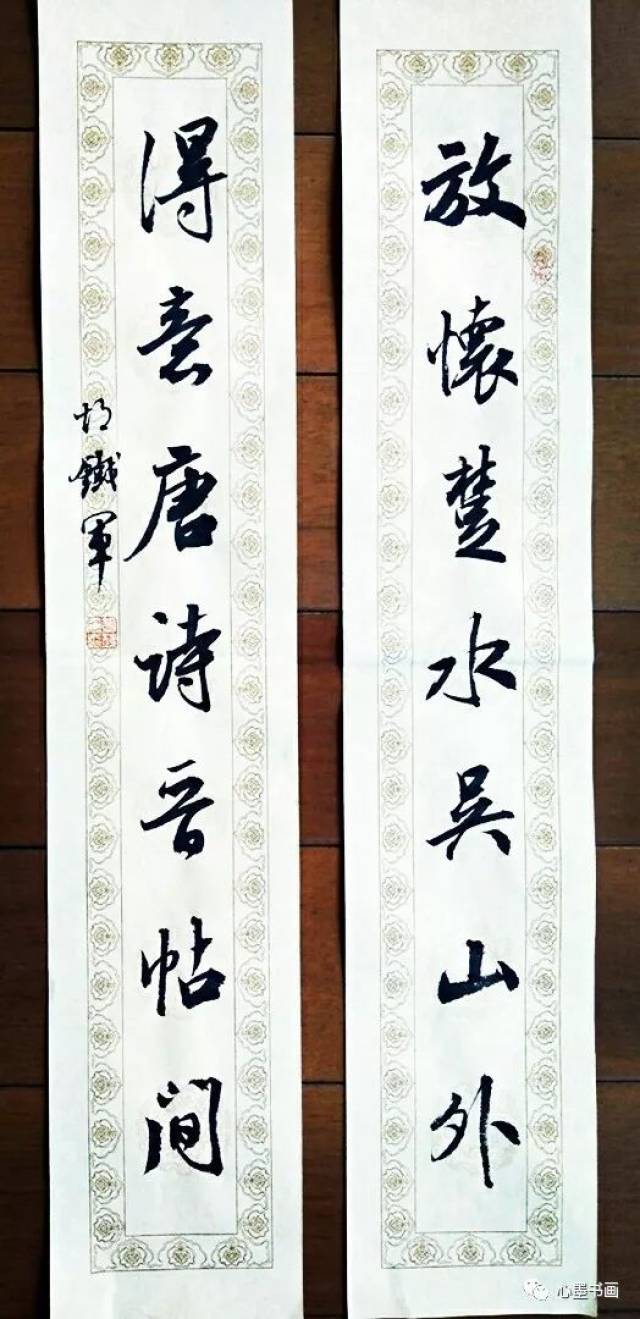 放懷楚水吴山外
得意唐诗晋帖间
胡鐵軍
心墨书画